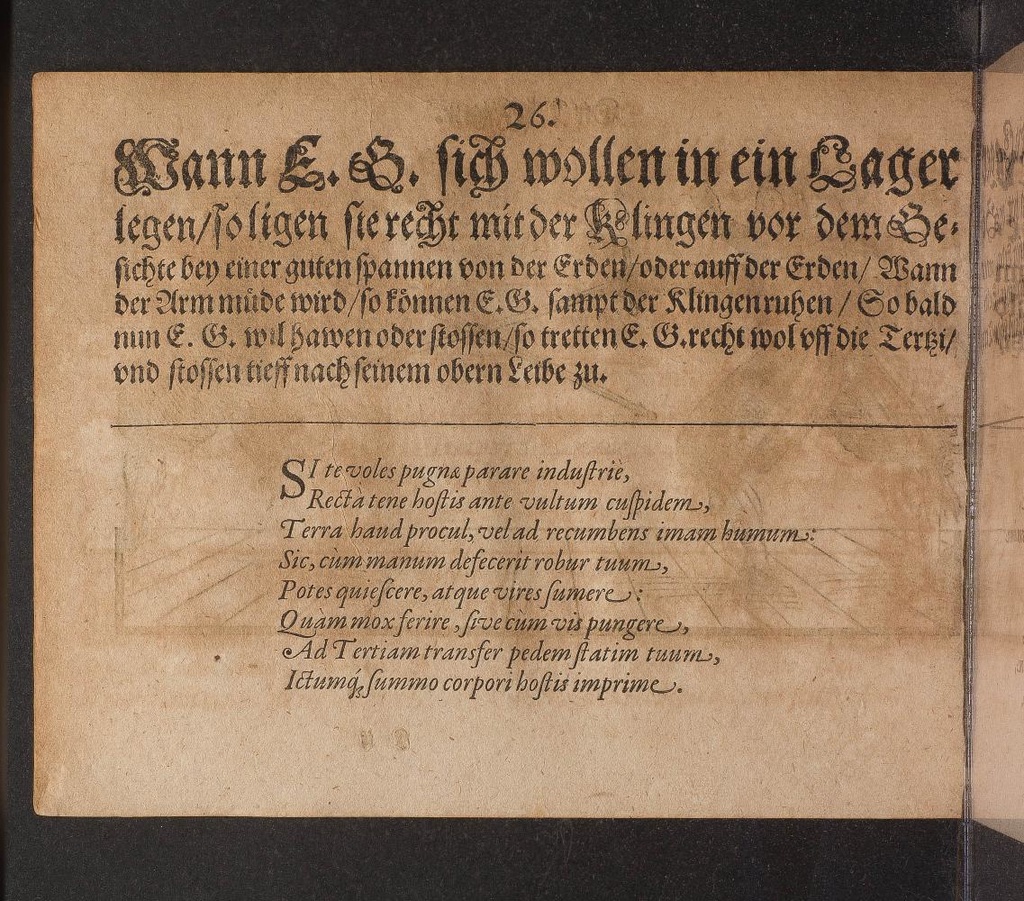 26.
Wann E. G. sich wollen in ein Lager
legen/so ligen sie recht mit der Klingen vor dem Ge-
sichte bey einer guten spannen von der Erden/oder auff der Erden/ Wann
der Arm müde wird/so können E.G. sampt der Klingen ruhen / So bald
nun E. G. wil hawen oder stossen/so tretten E. G. recht wol vff die Tertzi/
vnd stossen tieff nach seinem obern Leibe zu.
SI te voles pugnæ parare industriè,
Rectà tene hostis ante vultum cuspidem,
Terra haud procul, vel ad recumbens imam humum:
Sic, cùm manum defecerit robur tuum,
Potes quiescere, atque vires sumere:
Quàm mox ferire, sive cùm vis pungere,
Ad Tertiam transfer pedem statim tuum,
Ictumq́; summo corpori hostis imprime.